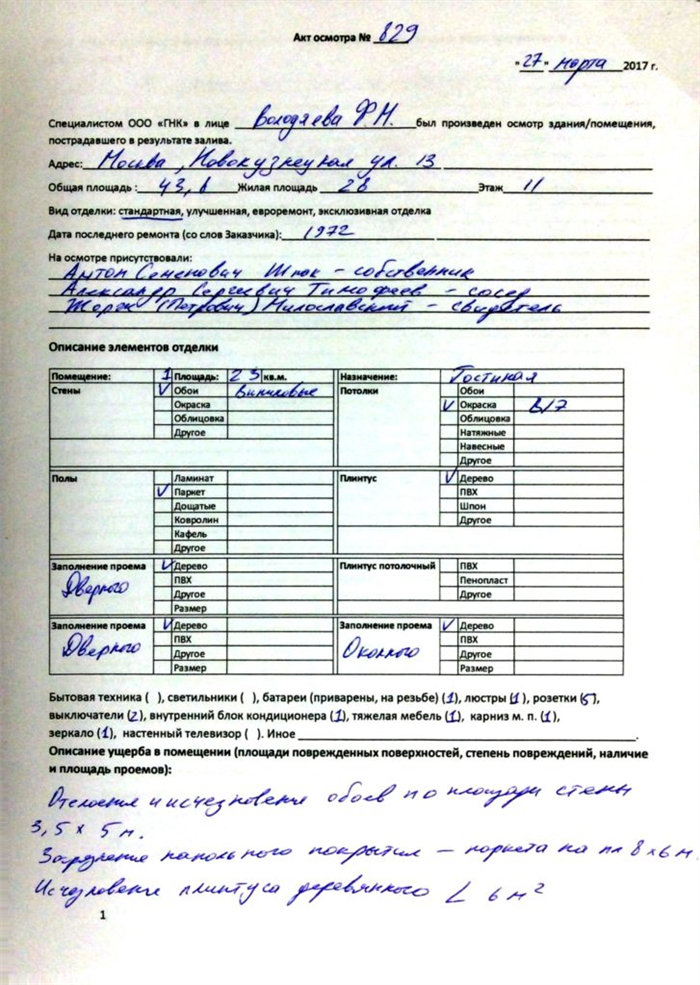 Акт осмотра № 829
"27" марта 2017 г.
Специалистом ООО «ГНК» в лице Володяева Ф.М. был произведен осмотр здания/помещения,
пострадавшего в результате залива.
Адрес: Москва, Новокузнецкая ул. 13
Общая площадь : 43, Жилая площадь 28 Этаж 11
Вид отделки: стандартная, улучшенная, евроремонт, эксклюзивная отделка
Дата последнего ремонта (со слов Заказчика): 1972
На осмотре присутствовали:
Антон Семенович Шпак - собственник
Александр Сергеевич Тимофеев - сосед
Жорж (Петрович) Милославский - свидетель
Описание элементов отделки
Помещение: 1 Площадь: 23 кв.м. Назначение: Гостиная
Стены V Обои Виниловые Потолки Обои
Окраска V Окраска В/Э
Облицовка Облицовка
Другое Натяжные
Навесные
Другое
Полы Ламинат Плинтус V Дерево
V Паркет ПВХ
Дощатые Шпон
Ковролин Другое
Кафель
Другое
Заполнение проема V Дерево Плинтус потолочный ПВХ
Дверного ПВХ Пенопласт
Другое Другое
Размер
Заполнение проема V Дерево Заполнение проема V Дерево
Дверного ПВХ Оконного ПВХ
Другое Другое
Размер Размер
Бытовая техника ( ), светильники ( ), батареи (приварены, на резьбе) (1), люстры (1), розетки (5),
выключатели (2), внутренний блок кондиционера (1), тяжелая мебель (1), карниз м. п. (1),
зеркало (1), настенный телевизор ( ). Иное
Описание ущерба в помещении (площади поврежденных поверхностей, степень повреждений, наличие
и площадь проемов):
Отслоение и исчезновение обоев по площади стены
3,5 x 5 м.
напольного покрытия — паркета на пл 8 x 6 м.
Исчезновение плинтуса деревянного L 6 м²
1